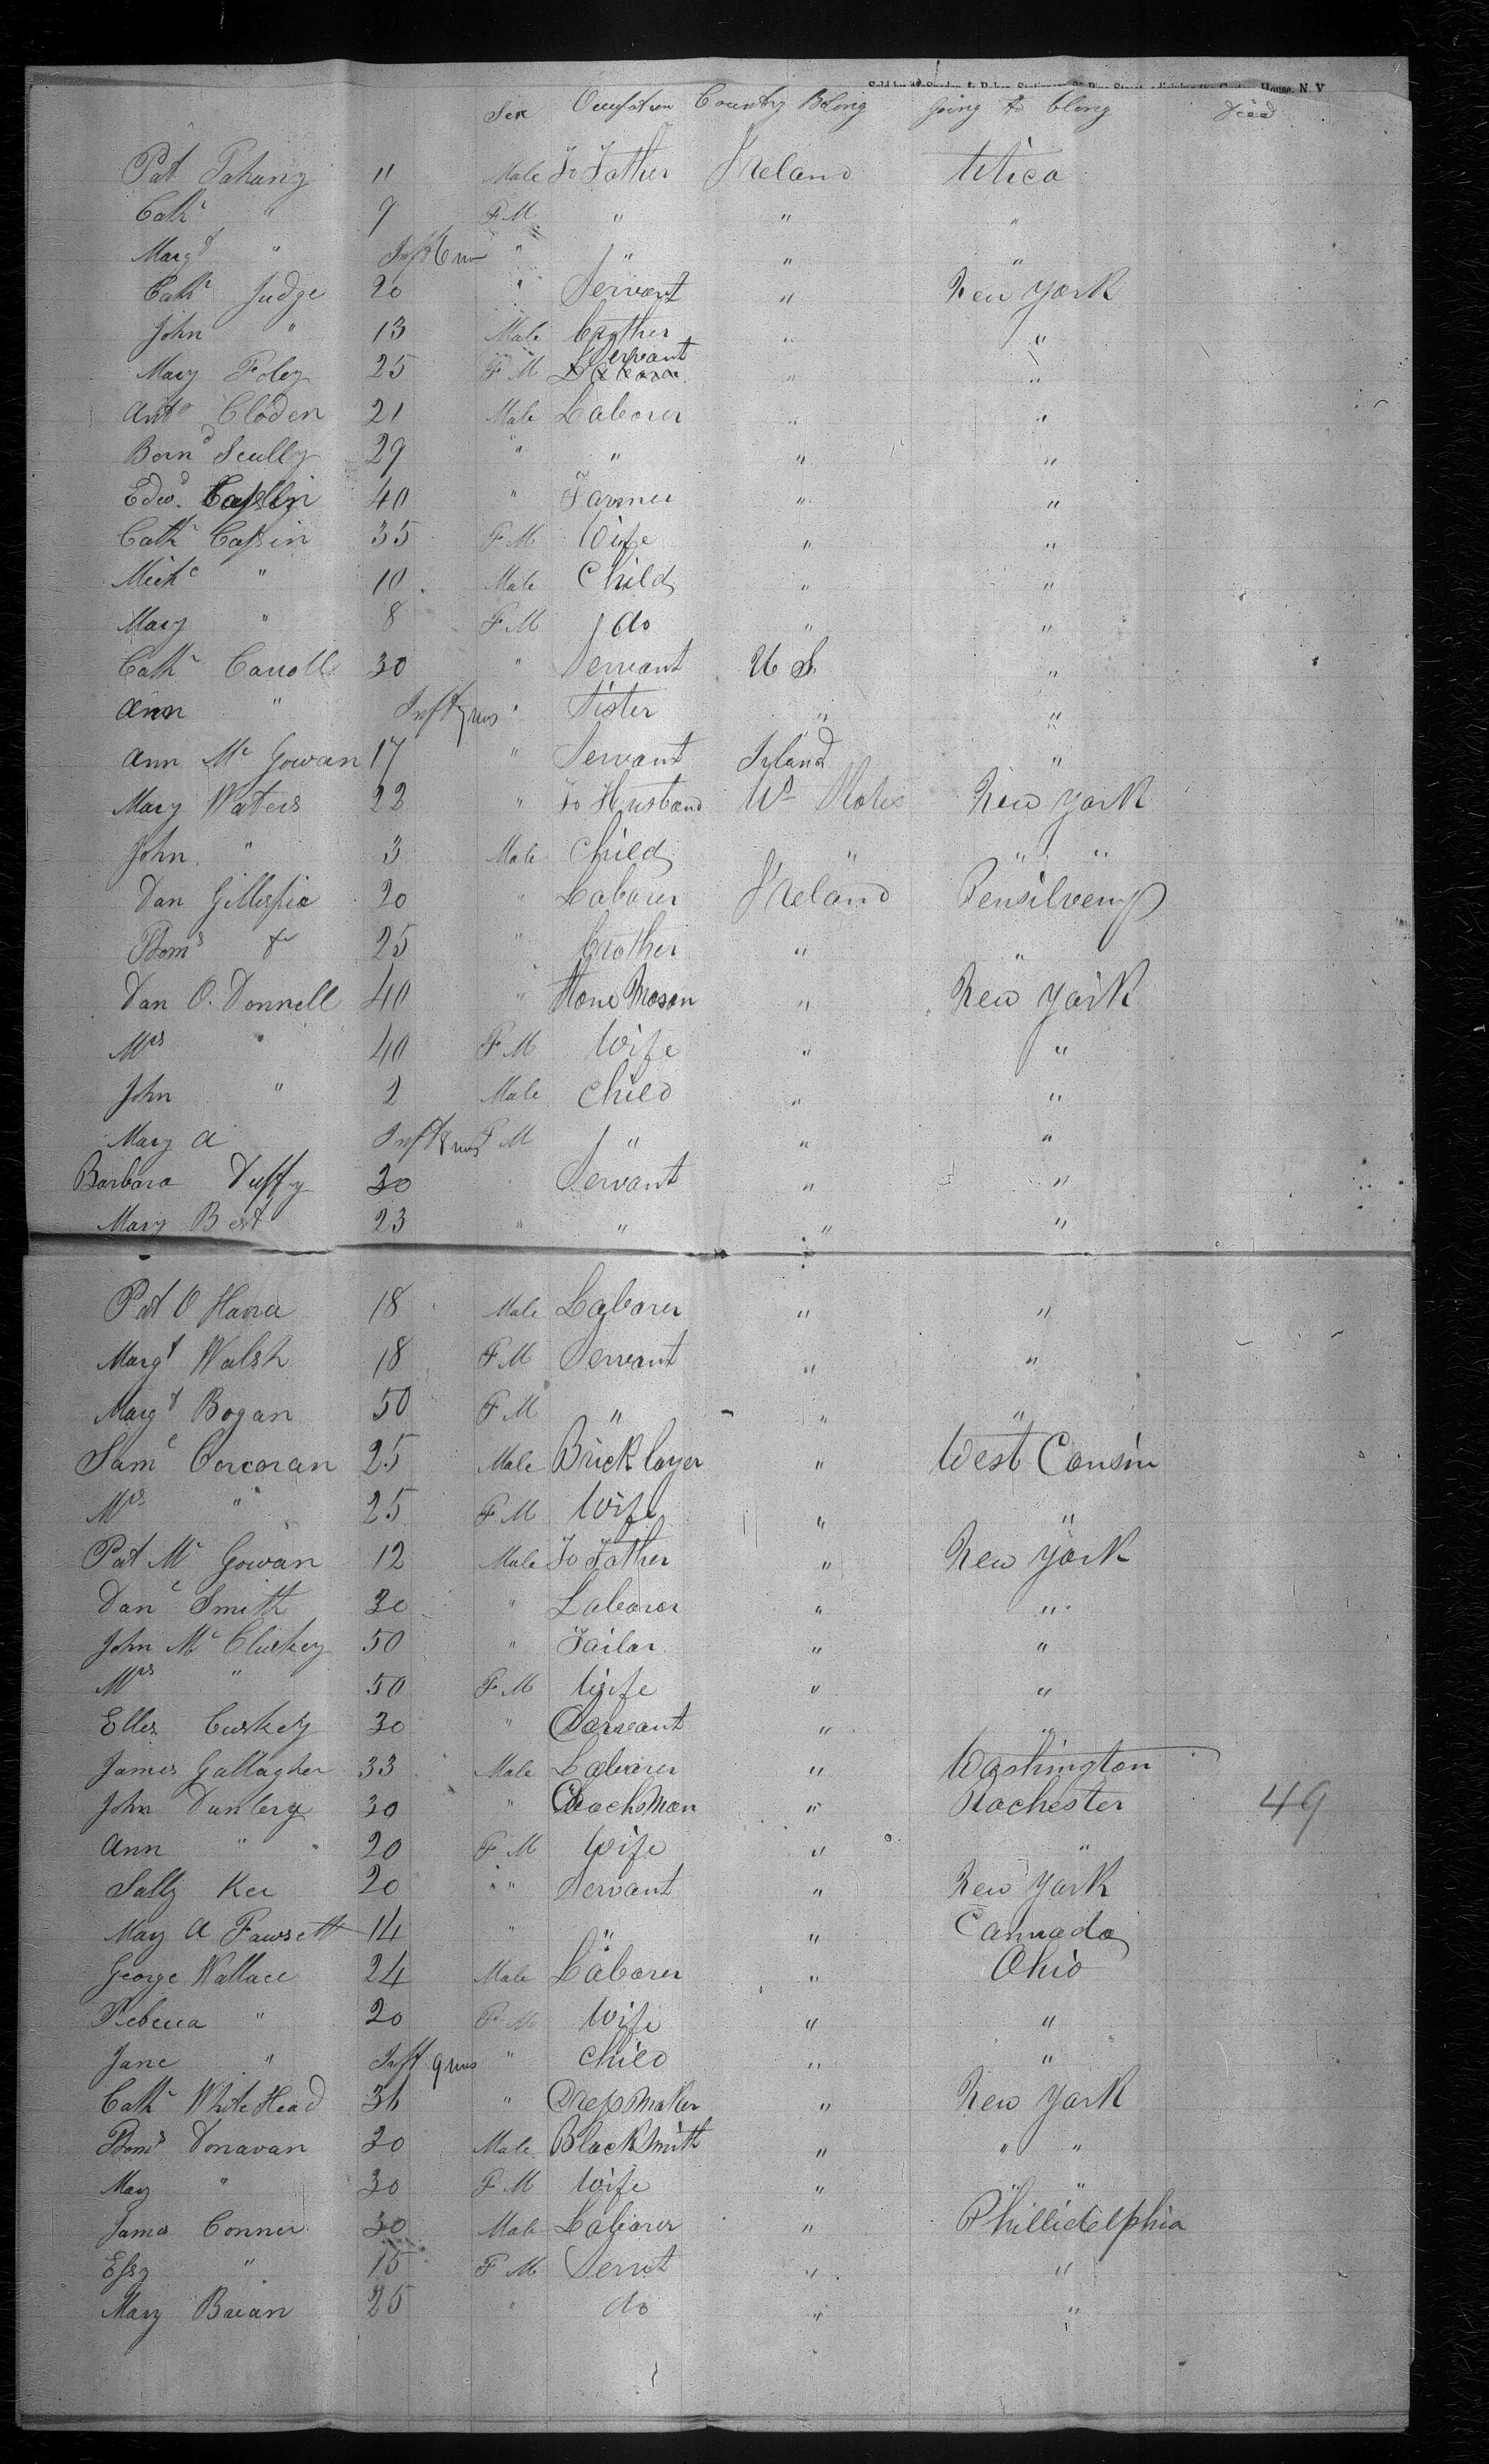 House, N.Y.
Sex Occupation Country Blong going to blong Died
Pat Tahany 11 Male To Father Ireland Utica
Cath " 9 F M " " "
Margt " Inft 6 ms " " " "
Cath Judge 20 " Servant " New York
John " 13 Male brother " "
Mary Foley 25 F M Servant " "
Anto Cloden 21 Male Laborer " "
Bernd Scully 29 " " " "
Edwd. 40 " Farmer " "
Cath Cassin 35 F M Wife " "
Michl " 10 Male Child " "
Mary " 8 F M do " "
Cath Carroll 30 " Servant U S "
Ann " Inft ms " Sister " "
Ann Mc Gowan 17 " Servant Irland "
Mary Waters 22 " To Husband New York
John " 3 Male Child " " "
Dan Gillespie 20 " Laborer Ireland Pensilveny
Thoms 25 " brother " "
Dan O. Donnell 40 " Stone Mason " New York
Mrs " 40 F M Wife " "
John " 2 Male Child " "
Mary A Inft 8 ms F M " " "
Barbara Duffy 30 " Servant " "
Mary Best 23 " " " "
Pat O Hara 18 Male Laborer " "
Margt Walsh 18 F M Servant " "
Margt Bogan 50 F M " " "
Saml Corcoran 25 Male Brick layer " West Consin
Mrs " 25 F M Wife " "
Pat Mc Gowan 12 Male To Father " New York
Danl Smith 30 " Laborer " "
John Mc Cluskey 50 " Tailor " "
Mrs " 50 F M Wife " "
Ellen Cuskey 30 " Servant " "
James Gallagher 33 Male Laborer " Washington
John Dunlevy 30 " CoachMan " Rochester 49
Ann " 20 F M Wife " "
Sally Ker 20 " " Servant " New York
Mary A Fawsett 14 " " " Cannada
George Wallace 24 Male Laborer " Ohio
Rebecca " 20 F M Wife " "
Jane " Inft 9 ms " Child " "
Cath White Head 36 " Dress Maker " New York
Thoms Donavan 30 Male Black Smith " " "
Mary " 30 F M Wife " " "
James Conner 30 Male Laborer " Phillidelphia
Essy " 15 F M Servt " "
Mary Brian 25 " do " "